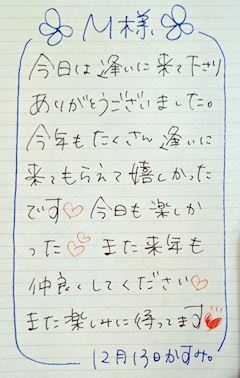 M様
今日は逢いに来て下さり
ありがとうございました。
今年もたくさん逢いに
来てもらえて嬉しかった
です♡今日も楽しか
った♡♡また来年も
仲良くしてください♡
また楽しみに待ってます♥
12月13日かすみ。